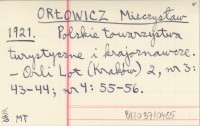 ORŁOWICZ Mieczysław
1921. Polskie towarzystwa
turystyczne i krajoznawcze.
- Orli Lot (Kraków) 2, nr 3:
43-44; nr 4: 55-56.
MT